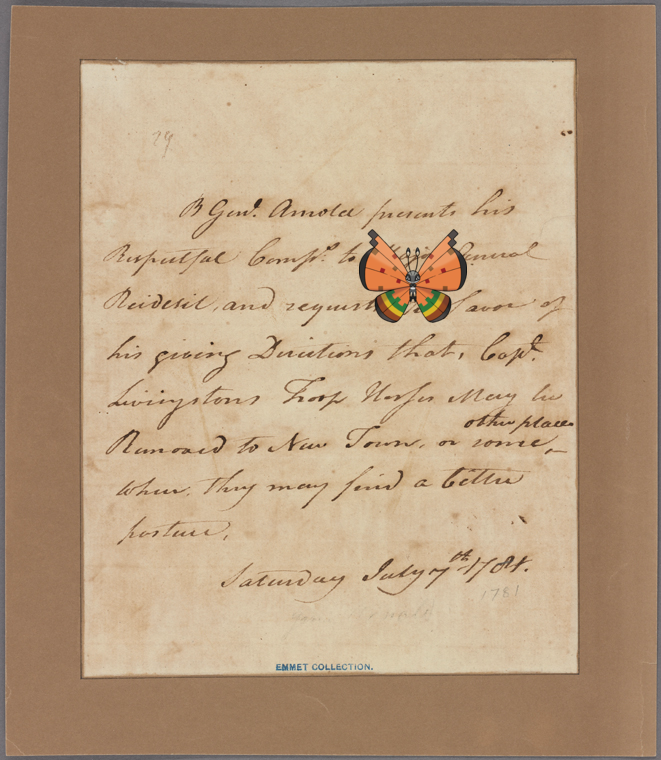 B Genl. Arnold presents his
Respectful Compts. to General
Reidesil, and Favor of
his giving Directions that, Capt.
Livingstons Troop Horses May be
other places
Removed to New Town, or some
where, they may find a bettre
pasture,
Saturday July 7th 1781.
1781
EMMET COLLECTION.